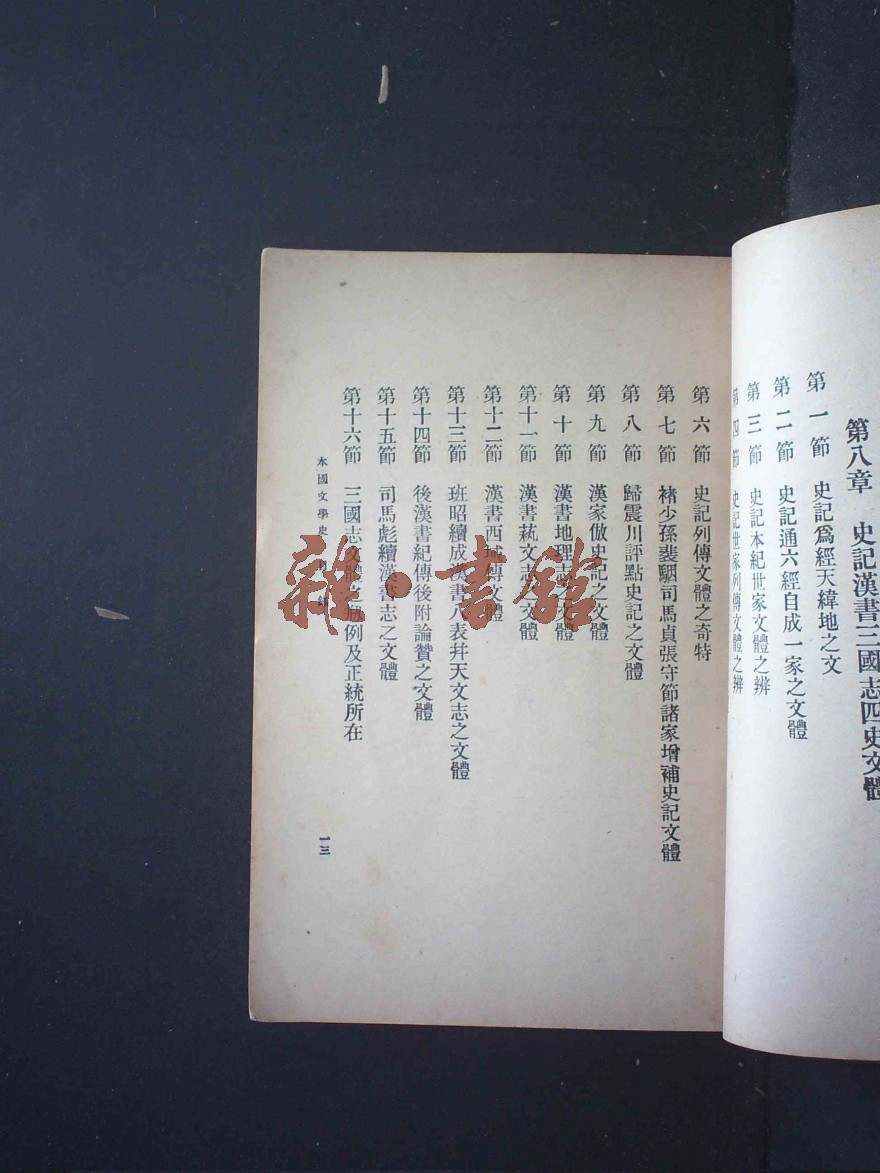 第八章 史記漢書三國志四史文體
第一節 史記爲經天緯地之文
第二節 史記通六經自成一家之文體
第三節 史記本紀世家文體之辨
第四節 史記世家列傳文體之辨
第六節 史記列傳文體之奇特
第七節 褚少孫裴駰司馬貞張守節諸家增補史記文體
第八節 歸震川評點史記之文體
第九節 漢家倣史記之文體
第十節 漢書地理志文體
第十一節 漢書藝文志文體
第十二節 漢書西域傳文體
第十三節 班昭續成漢書八表幷天文志之文體
第十四節 後漢書紀傳後附論贊之文體
第十五節 司馬彪續漢書志之文體
第十六節 三國志文體之例及正統所在
本國文學史
一三
雜·書館